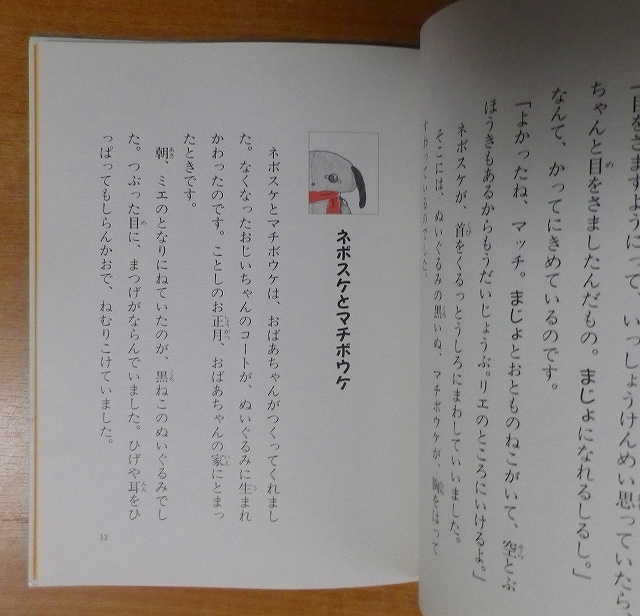 「目をさますようにって、いっしょうけんめい思っていたら、
ちゃんと目をさましたんだもの。まじょになれるしるし。」
なんて、かってにきめているのです。
「よかったね、マッチ。まじょとおとものねこがいて、空とぶ
ほうきもあるからもうだいじょうぶ。リエのところにいけるよ。」
ネボスケが、首をくるっとうしろにまわしていいました。
そこには、ぬいぐるみの黒いぬ、マチボウケが、胸をはって
すわっている
ネボスケとマチボウケ
ネボスケとマチボウケは、おばあちゃんがつくってくれまし
た。なくなったおじいちゃんのコートが、ぬいぐるみに生まれ
かわったのです。ことしのお正月、おばあちゃんの家にとまっ
たときです。
朝、ミエのとなりにねていたのが、黒ねこのぬいぐるみでし
た。つぶった目に、まつげがならんでいました。ひげや耳をひ
っぱってもしらんかおで、ねむりこけていました。
13